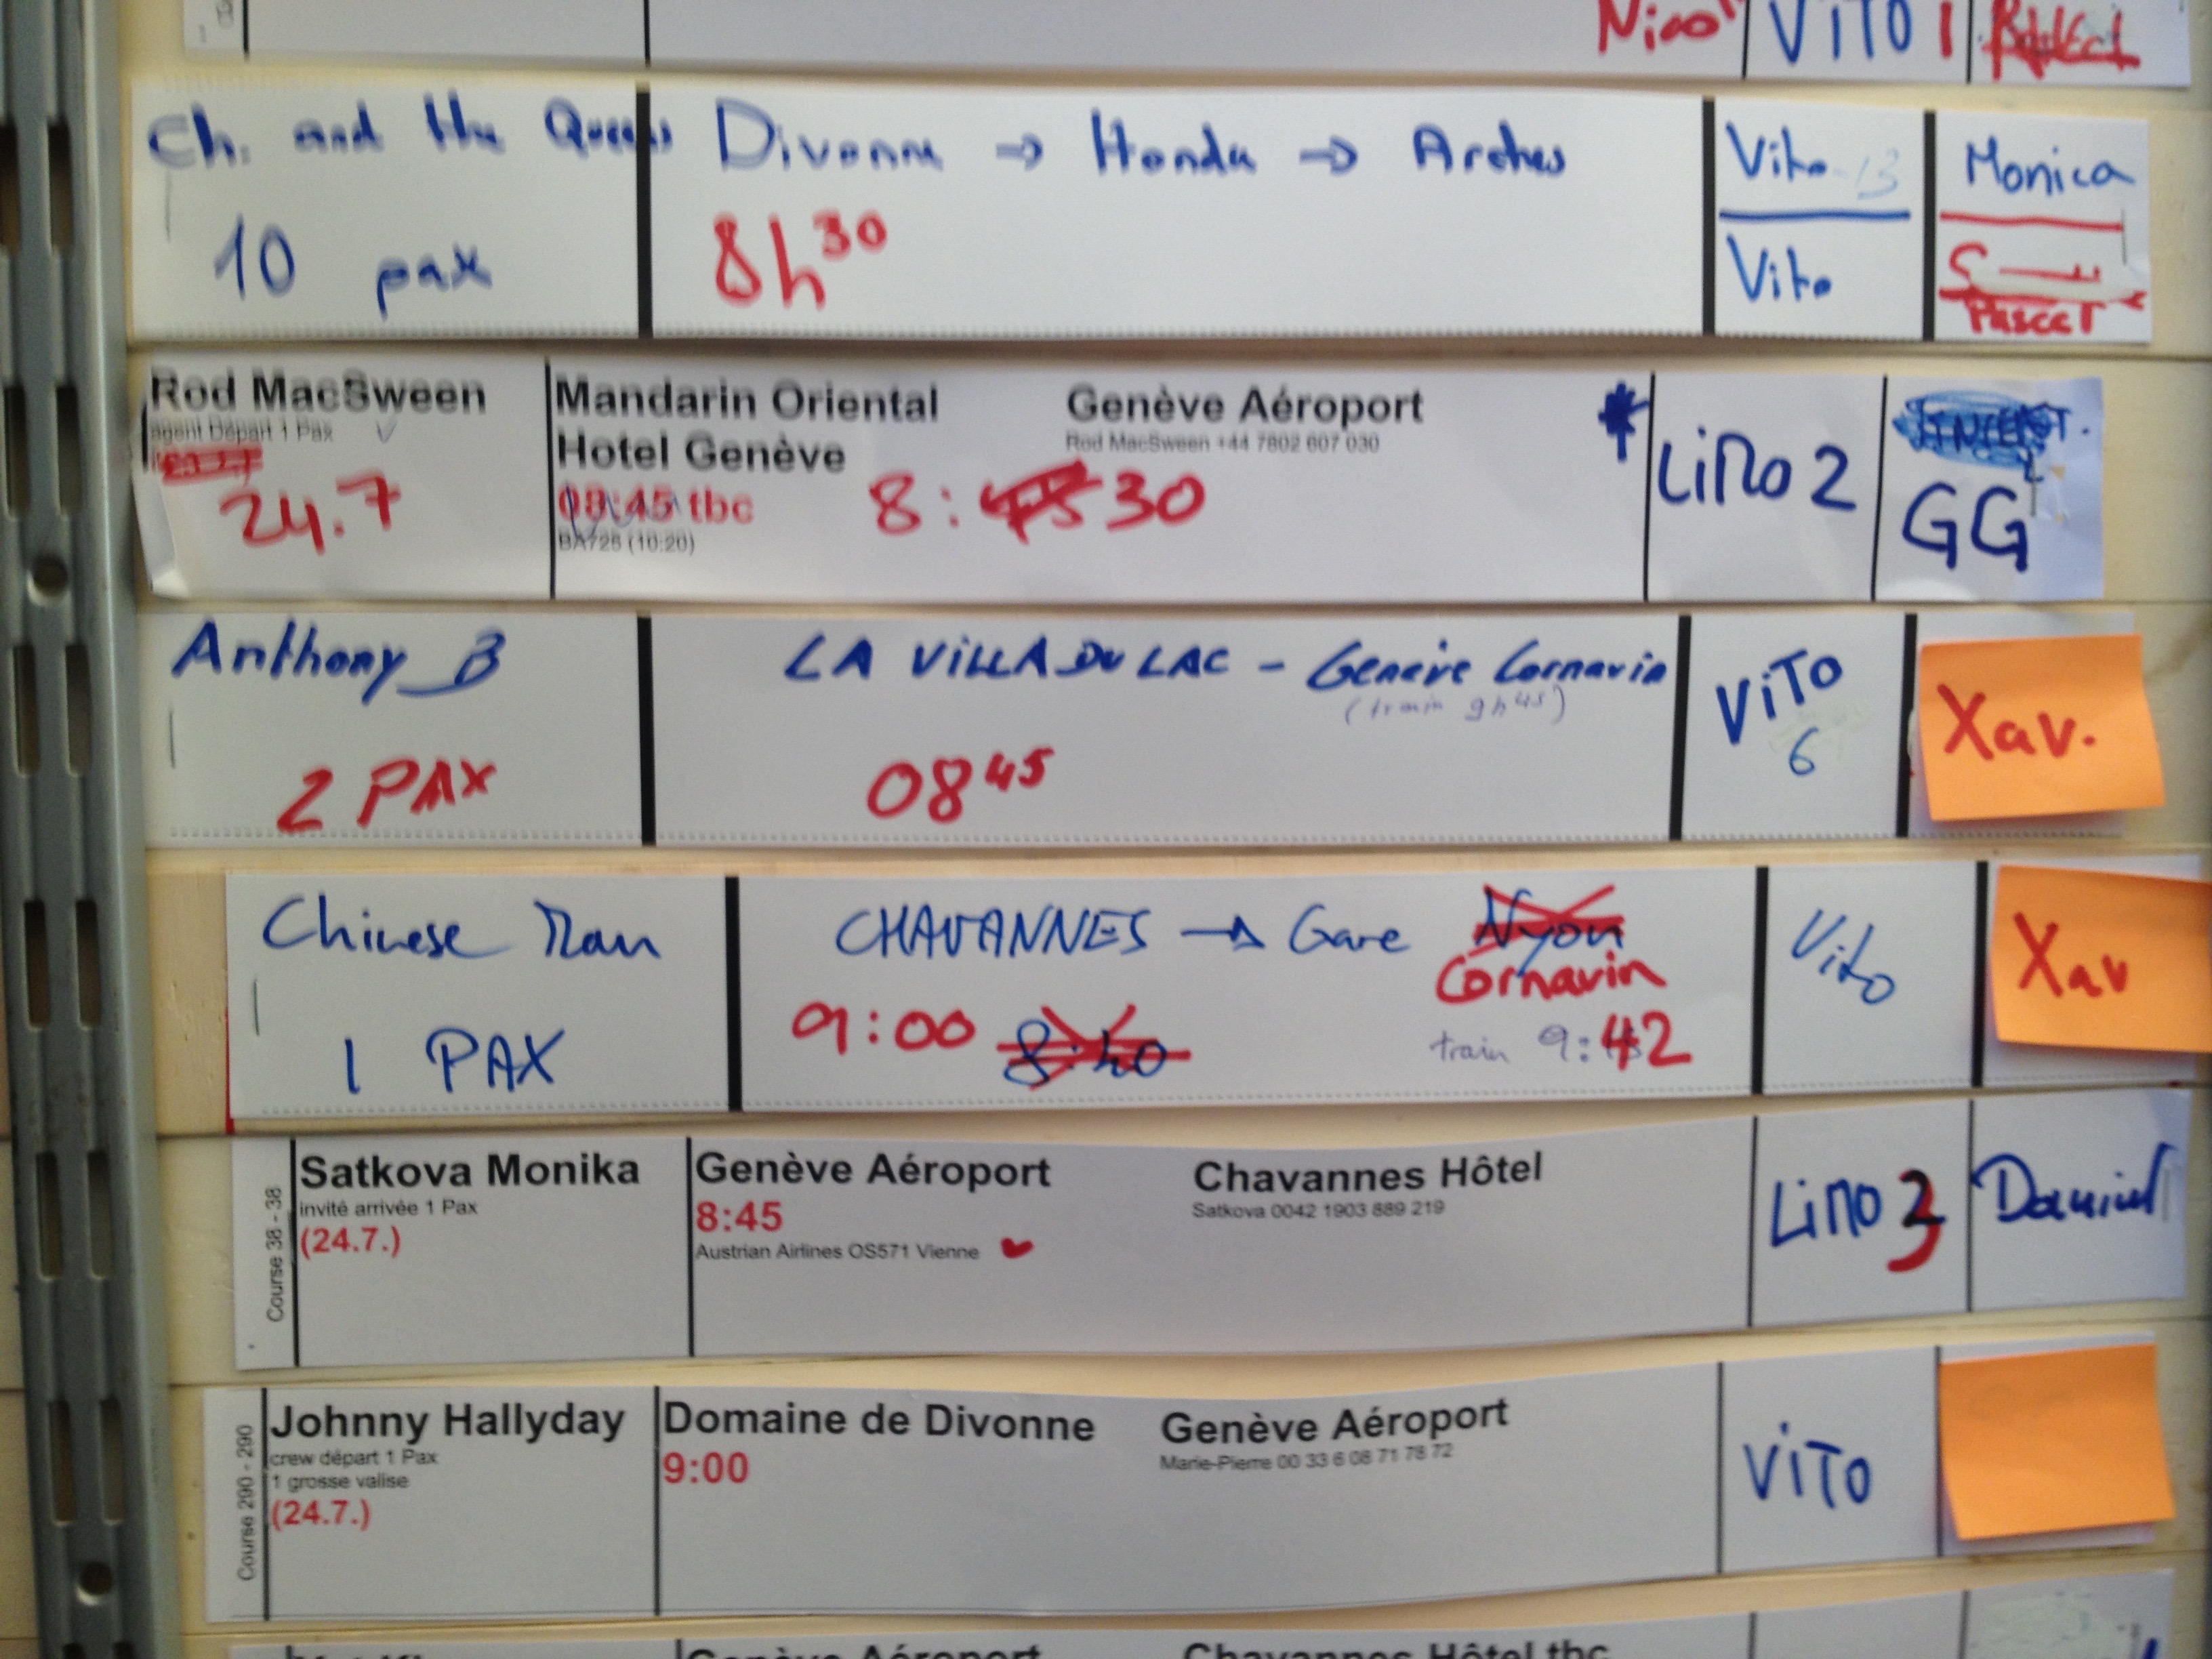 ViTO 1
Ch. and the Queens
10 pax
Divonne → Honda → Arches
8h30
Vito 13
Vito
Monica
Pascal
Rod MacSween
agent Départ 1 Pax
24.7
Mandarin Oriental
Hotel Genève
08:45 tbc
BA725 (10:20)
8: 45 30
Genève Aéroport
Rod MacSween +44 7802 607 030
LiMo 2
GG
Anthony B
2 PAX
LA ViLLA DU LAC - Genève Cornavin
(train 9h45)
0845
ViTO
6
Xav.
Chinese Man
1 PAX
CHAVANNES → Gare Nyon
Cornavin
9:00 8:40
train 9:42
Vito
Xav
Course 38 - 38
Satkova Monika
invité arrivée 1 Pax
(24.7.)
Genève Aéroport
8:45
Austrian Airlines OS571 Vienne
Chavannes Hôtel
Satkova 0042 1903 889 219
LiMO 3
Daniel
Course 290 - 290
Johnny Hallyday
crew départ 1 Pax
1 grosse valise
(24.7.)
Domaine de Divonne
9:00
Genève Aéroport
Marie-Pierre 00 33 6 08 71 78 72
ViTO
Genève Aéroport
Chavannes Hôtel tbc